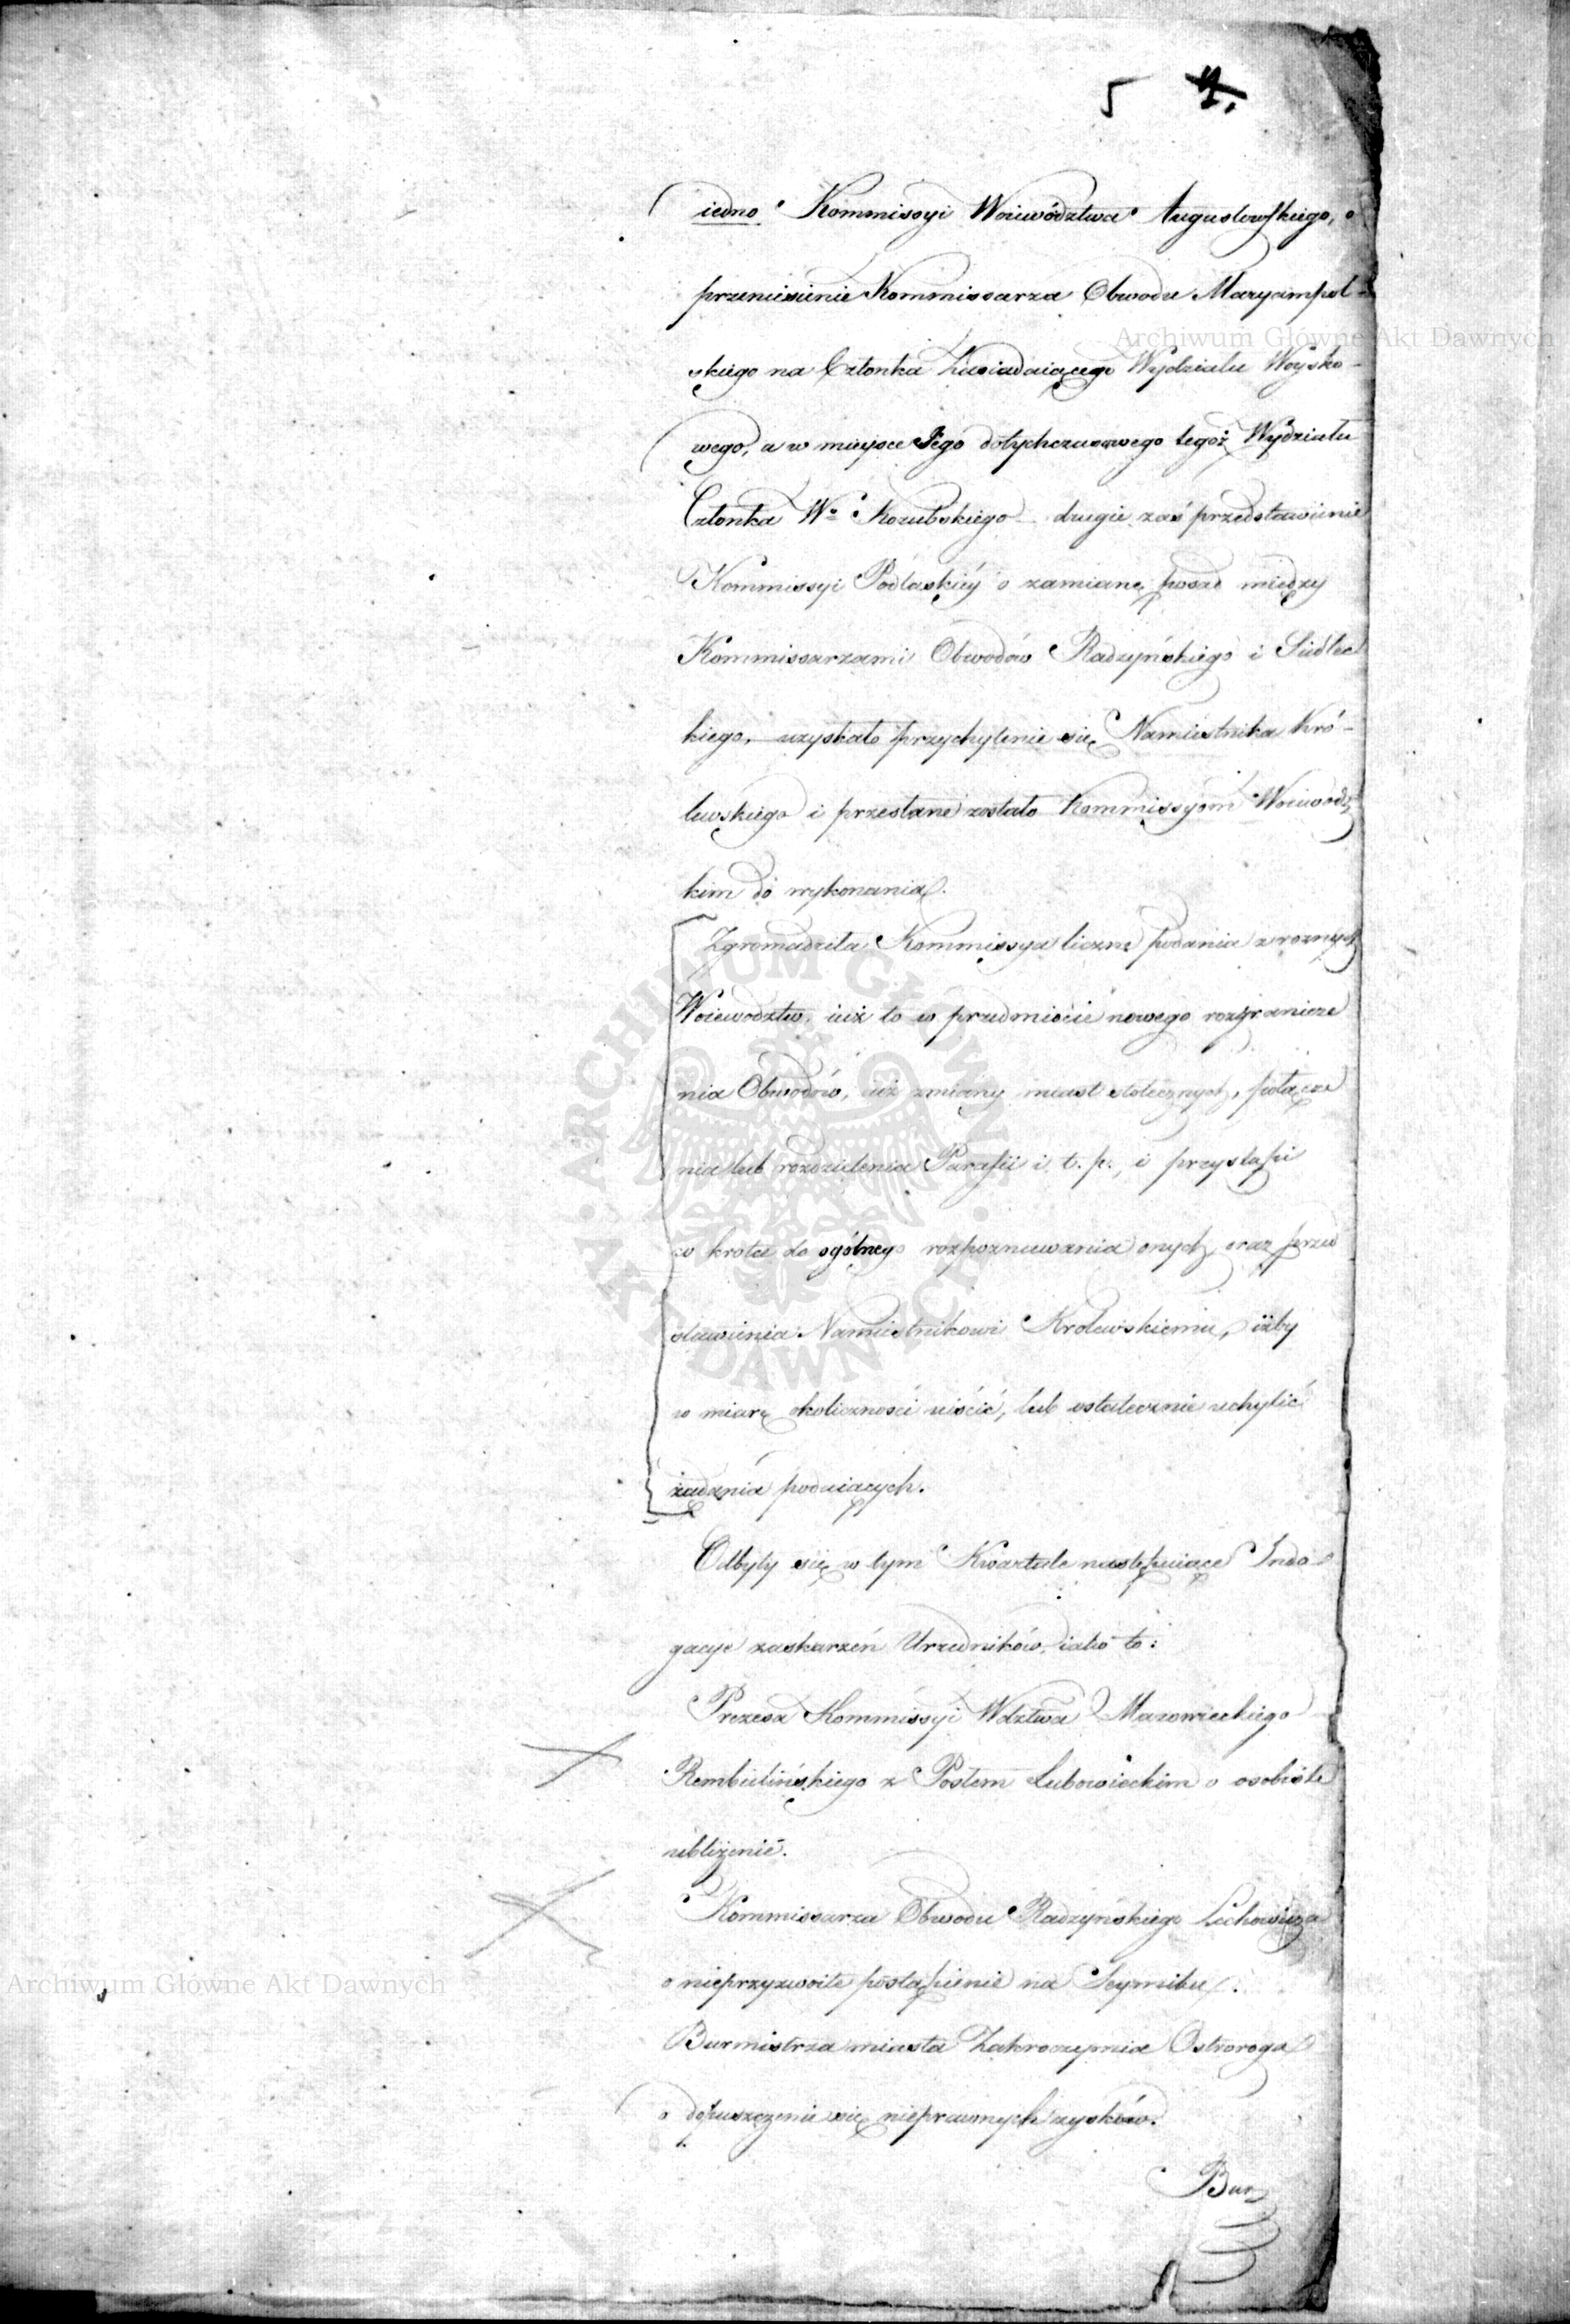 5
iedno Kommissyi Woiewództwa Augustowskiego, o
przeniesienie Kommissarza Obwodu Maryampol-
Archiwum Główne Akt Dawnych
skiego na Członka Zasiadaiącego Wydziału Woysko-
wego, a w mieysce Jego dotychczasowego tegoż Wydziału
Członka Wo Kozubskiego – drugie zaś przedstawienie
Kommissyi Podlaskiéy o zamianę posad między
Kommissarzami Obwodów Radzyńskiego i Siedlec
kiego, uzyskało przychylenie się Namiestnika Kró-
lewskiego i przesłane zostało Kommissyom Woiewódz
kim do wykonania.
Zgromadziła Kommissya liczne podania z roznych
Woiewodztw, iuż to w przedmiocie nowego rozgranicze
nia Obwodów, iuż zmiany miast stołecznych, połącze
nia lub rozdzielenia Parafii i t. p., i przystąpi
w krotce do ogólnego rozpoznawania onych, oraz przed
stawienia Namiestnikowi Krolewskiemu, iżby
w miarę okoliczności uiścić, lub ostatecznie uchylić
żądania podaiących.
Odbyły się w tym Kwartale następuiące Inda
gacye zaskarżeń Urzedników, iako to:
Prezesa Kommissyi Wdztwa Mazowieckiego
Rembielińskiego z Posłem Lubowieckim o osobiste
ubliżenie.
Kommissarza Obwodu Radzyńskiego Lechowicza
o nieprzyzwoite postąpienie na Seymiku.
Archiwum Główne Akt Dawnych
Burmistrza miasta Zakroczymia Ostroroga
o dopuszczenie się nieprawnych zysków.
Bur
ARCHIWUM GŁÓWNE AKT DAWNYCH